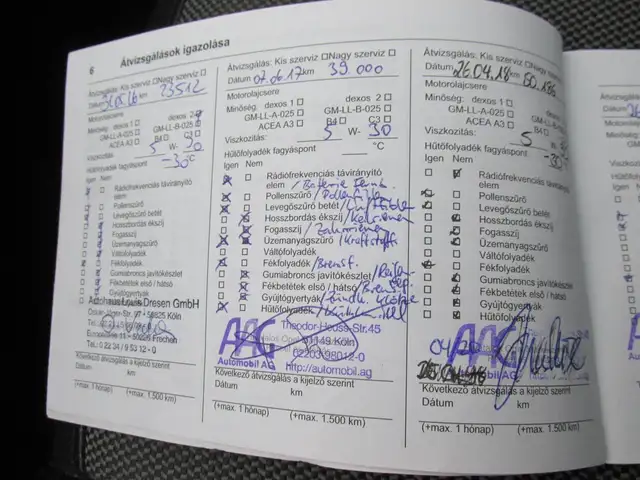 6 Átvizsgálások igazolása
Átvizsgálás: Kis szerviz □ Nagy szerviz □
Dátum 31.05.16 km 23512
Motorolajcsere
Minőség: dexos 1 □ dexos 2
GM-LL-A-025 □ GM-LL-B-025 □
ACEA A3 □ B4 □ C3 □
Viszkozitás: 5 W- 30
Hűtőfolyadék fagyáspont
-30 °C
Igen Nem
Rádiófrekvenciás távirányító elem
Pollenszűrő
Levegőszűrő betét
Hosszbordás ékszíj
Fogasszíj
Üzemanyagszűrő
Váltófolyadék
Fékfolyadék
Gumiabroncs javítókészlet
Fékbetétek első / hátsó
Gyújtógyertyák
Autohaus Louis Dresen GmbH
50825 Köln
Frechen
Tel.: 0 22 34 / 9 53 12 - 0
Következő átvizsgálás a kijelző szerint
Dátum km
(+max. 1 hónap) (+max. 1.500 km)
Átvizsgálás: Kis szerviz □ Nagy szerviz □
Dátum 07.06.17 km 39.000
Motorolajcsere
Minőség: dexos 1 □ dexos 2 □
GM-LL-A-025 □ GM-LL-B-025 □
ACEA A3 □ B4 □ C3 □
Viszkozitás: 5 W- 30
Hűtőfolyadék fagyáspont °C
Igen Nem
Rádiófrekvenciás távirányító
elem / Batterie
Pollenszűrő / Pollen
Levegőszűrő betét / Luftfilter
Hosszbordás ékszíj / Keilriemen
Fogasszíj / Zahnriemen
Üzemanyagszűrő / Kraftstoff
Váltófolyadék
Fékfolyadék / Bremsf.
Gumiabroncs javítókészlet / Reifen
Fékbetétek első / hátsó / Brems
Gyújtógyertyák / Zündkerze
Hűtőfolyadék / Kühlmittel
AAG
Automobil AG
Theodor-Heuss-Str. 45
51149 Köln
02203 98012-0
http://automobil.ag
Következő átvizsgálás a kijelző szerint
Dátum km
(+max. 1 hónap) (+max. 1.500 km)
Átvizsgálás: Kis szerviz □ Nagy
Dátum 26.04.18 km 50.186
Motorolajcsere
Minőség: dexos 1 □ dexos 2
GM-LL-A-025 □ GM-LL-B-025
ACEA A3 □ B4 □
Viszkozitás: 5 W-
Hűtőfolyadék fagyáspont
-30
Igen Nem
Rádiófrekvenciás távirányító
elem
Pollenszűrő
Levegőszűrő betét
Hosszbordás ékszíj
Fogasszíj
Üzemanyagszűrő
Váltófolyadék
Fékfolyadék
Gumiabroncs javítókészlet
Fékbetétek első / hátsó
Gyújtógyertyák
Hűtőfolyadék
AAG
Automobil AG
Következő átvizsgálás a kijelző szerint
Dátum km
(+max. 1 hónap) (+max. 1.500 km)